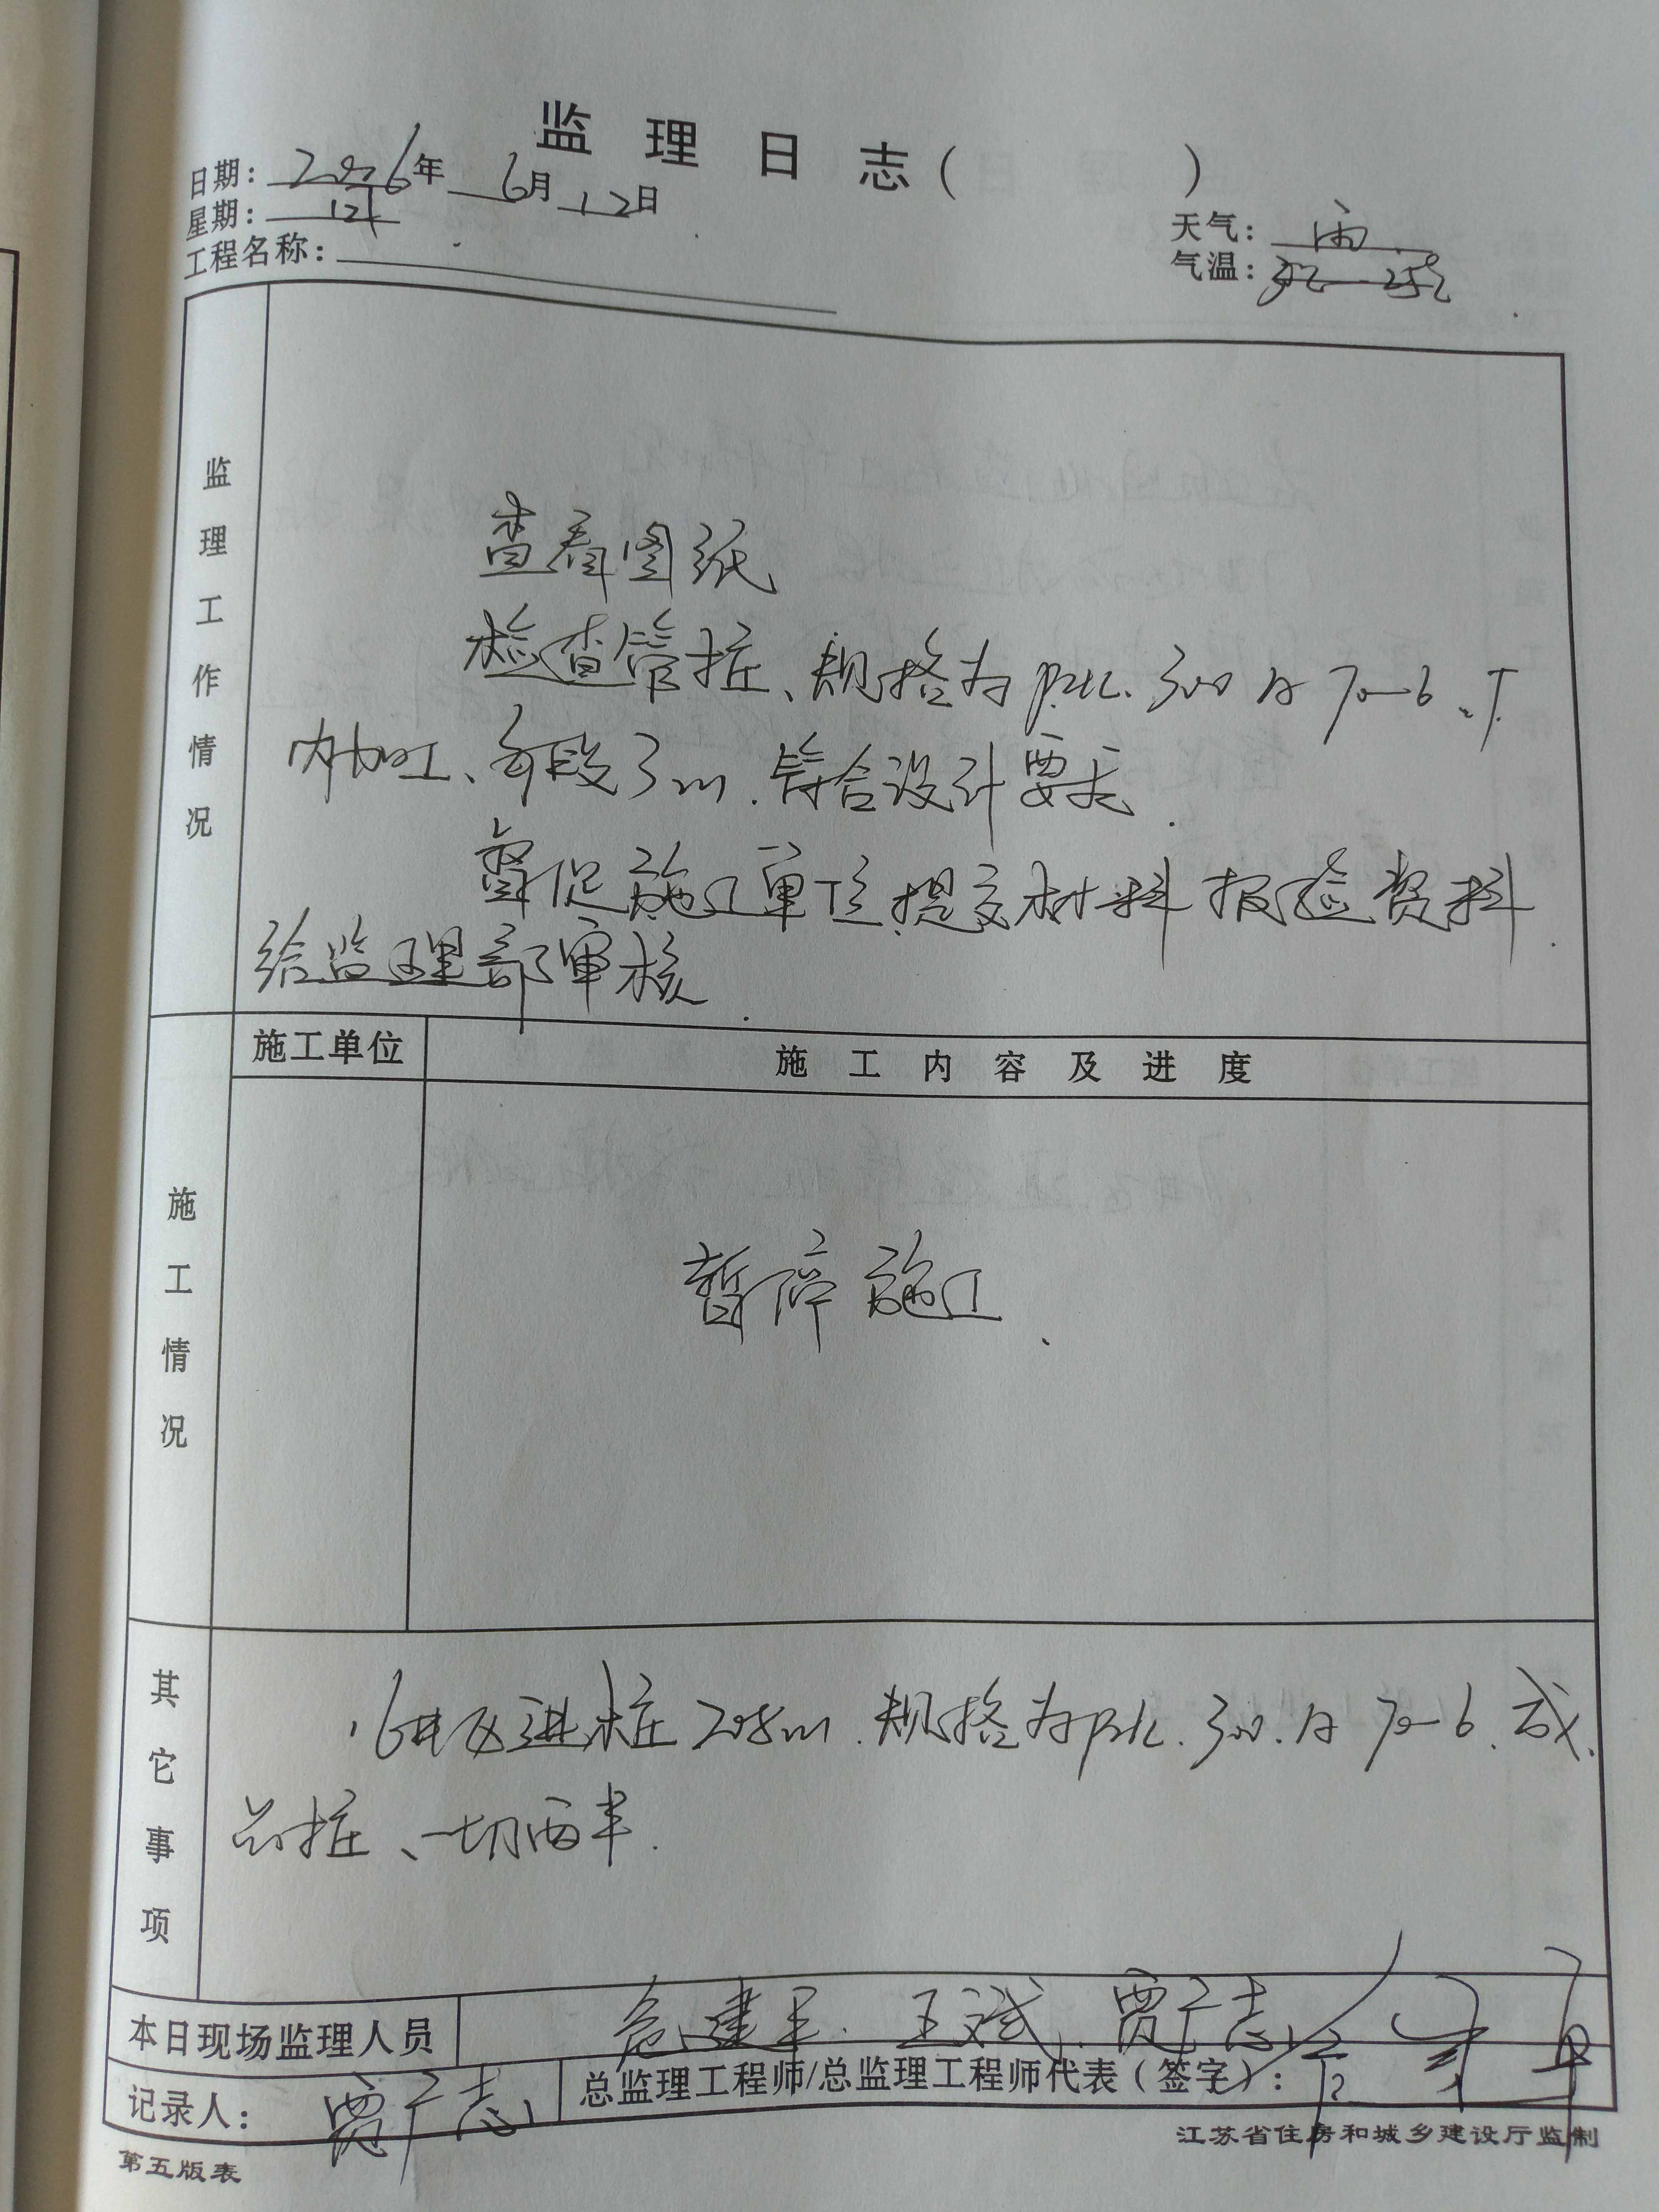 监理日志(　　　)
日期：2026年6月12日
星期：
天气：雨
工程名称：
气温：
监理工作情况
查看图纸
检查管桩、规格为 300 A 70-6
内加工、每段3m.符合设计要求.
督促施工单位提交材料报验资料
给监理部审核.
施工单位
施工内容及进度
施工情况
暂停施工.
其它事项
进桩208m.规格为 300. A 70-6.成
品桩、一切两半.
本日现场监理人员
王斌、贾广志、
记录人：贾广志
总监理工程师/总监理工程师代表（签字）：
江苏省住房和城乡建设厅监制
第五版表